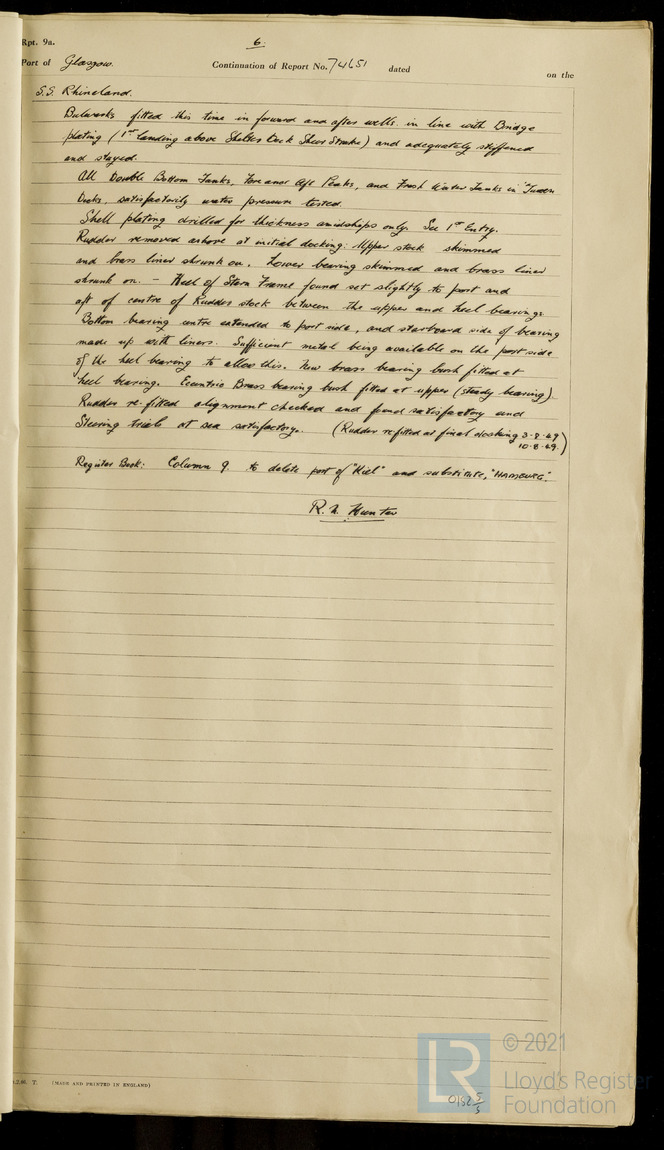 Rpt. 9a.
6.
Port of Glasgow. Continuation of Report No. 74651 dated on the
S.S. Rhineland.
Bulwarks fitted this time in forward and after wells. in line with Bridge
plating (1st landing above Shelter Deck Sheer Strake) and adequately stiffened
and stayed.
All Double Bottom Tanks, Fore and Aft Peaks, and Fresh Water Tanks in 'Tween
Decks, satisfactorily water pressure tested.
Shell plating drilled for thickness amidships only. See 1st Entry.
Rudder removed ashore at initial docking: Upper stock skimmed
and brass liner shrunk on. Lower bearing skimmed and brass liner
shrunk on. - Heel of Stern Frame found set slightly to port and
aft of centre of Rudder stock between the upper and heel bearings.
Bottom bearing centre extended to port side, and starboard side of bearing
made up with liners. Sufficient metal being available on the port side
of the heel bearing to allow this. New brass bearing bush fitted at
heel bearing. Eccentric Brass bearing bush fitted at upper (steady bearing).
Rudder re-fitted alignment checked and found satisfactory and
Steering trials at sea satisfactory. (Rudder re-fitted at final docking 3-8-49
10-8-49.)
Register Book: Column 9. to delete port of "Kiel" and substitute, "HAMBURG".
R. Hunter
T. (MADE AND PRINTED IN ENGLAND)
LR
© 2021
Lloyd's Register
Foundation
0182 5/5